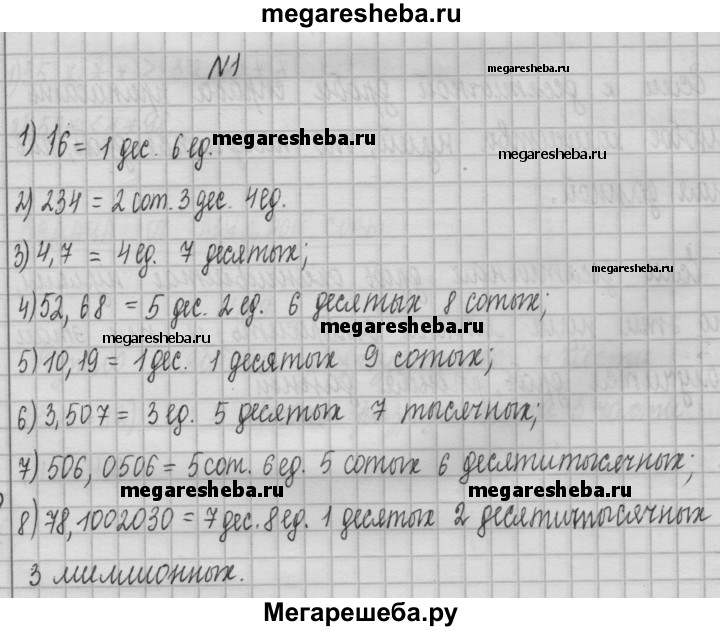 megaresheba.ru
N1
megaresheba.ru
1) 16 = 1 дес. 6 ед.
megaresheba.ru
megaresheba.ru
2) 234 = 2 сот. 3 дес. 4 ед.
3) 4,7 = 4 ед. 7 десятых;
megaresheba.ru
4) 52,68 = 5 дес. 2 ед. 6 десятых 8 сотых;
megaresheba.ru
megaresheba.ru
5) 10,19 = 1 дес. 1 десятых 9 сотых;
6) 3,507 = 3 ед. 5 десятых 7 тысячных;
7) 506,0506 = 5 сот. 6 ед. 5 сотых 6 десятитысячных;
megaresheba.ru
megaresheba.ru
8) 78,1002030 = 7 дес. 8 ед. 1 десятых 2 десятитысячных
3 миллионных.
Мегарешеба.ру